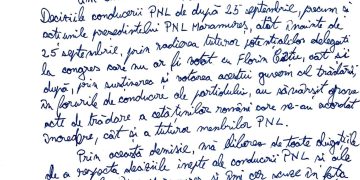 Deciziile conducerii PNL de după 25 septembrie, precum și
acțiunile președintelui PNL Maramureș, atât înainte de
25 septembrie, prin radierea tuturor potențialilor delegați
la congres care nu ar fi votat cu Florin Cîțu, cât și
după, prin susținerea și votarea acestui guvern al trădării
în forurile de conducere ale partidului, au săvârșit grave
acte de trădare a cetățenilor români care ne-au acordat
încredere, cât și a tuturor membrilor PNL.
Prin această demisie, mă eliberez de toate obligațiile
de a respecta deciziile inepte ale conducerii PNL și ale
și îmi cer scuze în fața